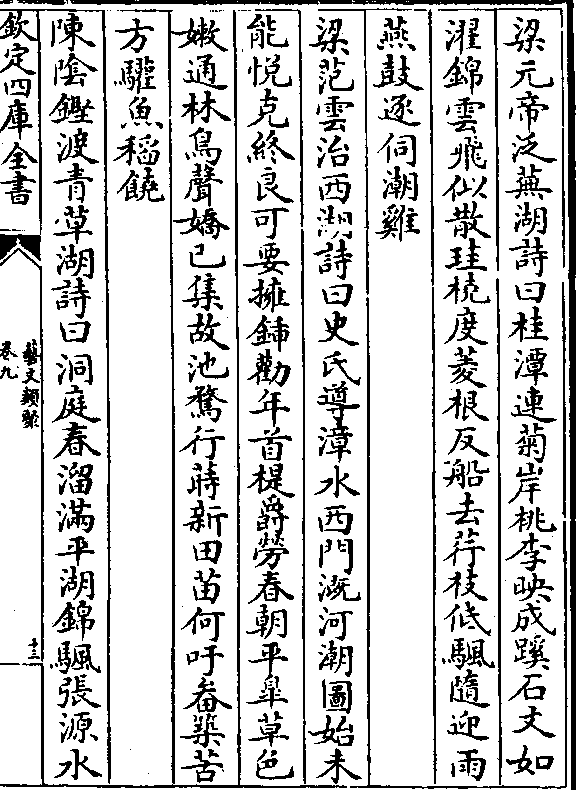 梁元帝泛蕪湖詩曰桂潭連菊岸桃李映成蹊石文如
濯錦雲飛似散珪桡度菱根反船去荇枝低颿隨迎雨
燕鼓逐伺潮雞
梁范雲治西湖詩曰史氏導漳水西門溉河潮圖始未
能悅克終良可要擁鍤勸年首提爵勞春朝平臯草色
嫩通林鳥聲嬌已集故池鶩行蒔新田苗何吁畚築苦
方驩魚稻饒
陳陰鏗渡青草湖詩曰洞庭春溜滿平湖錦颿張源水
欽定四庫全書
藝文類聚
卷九
十三